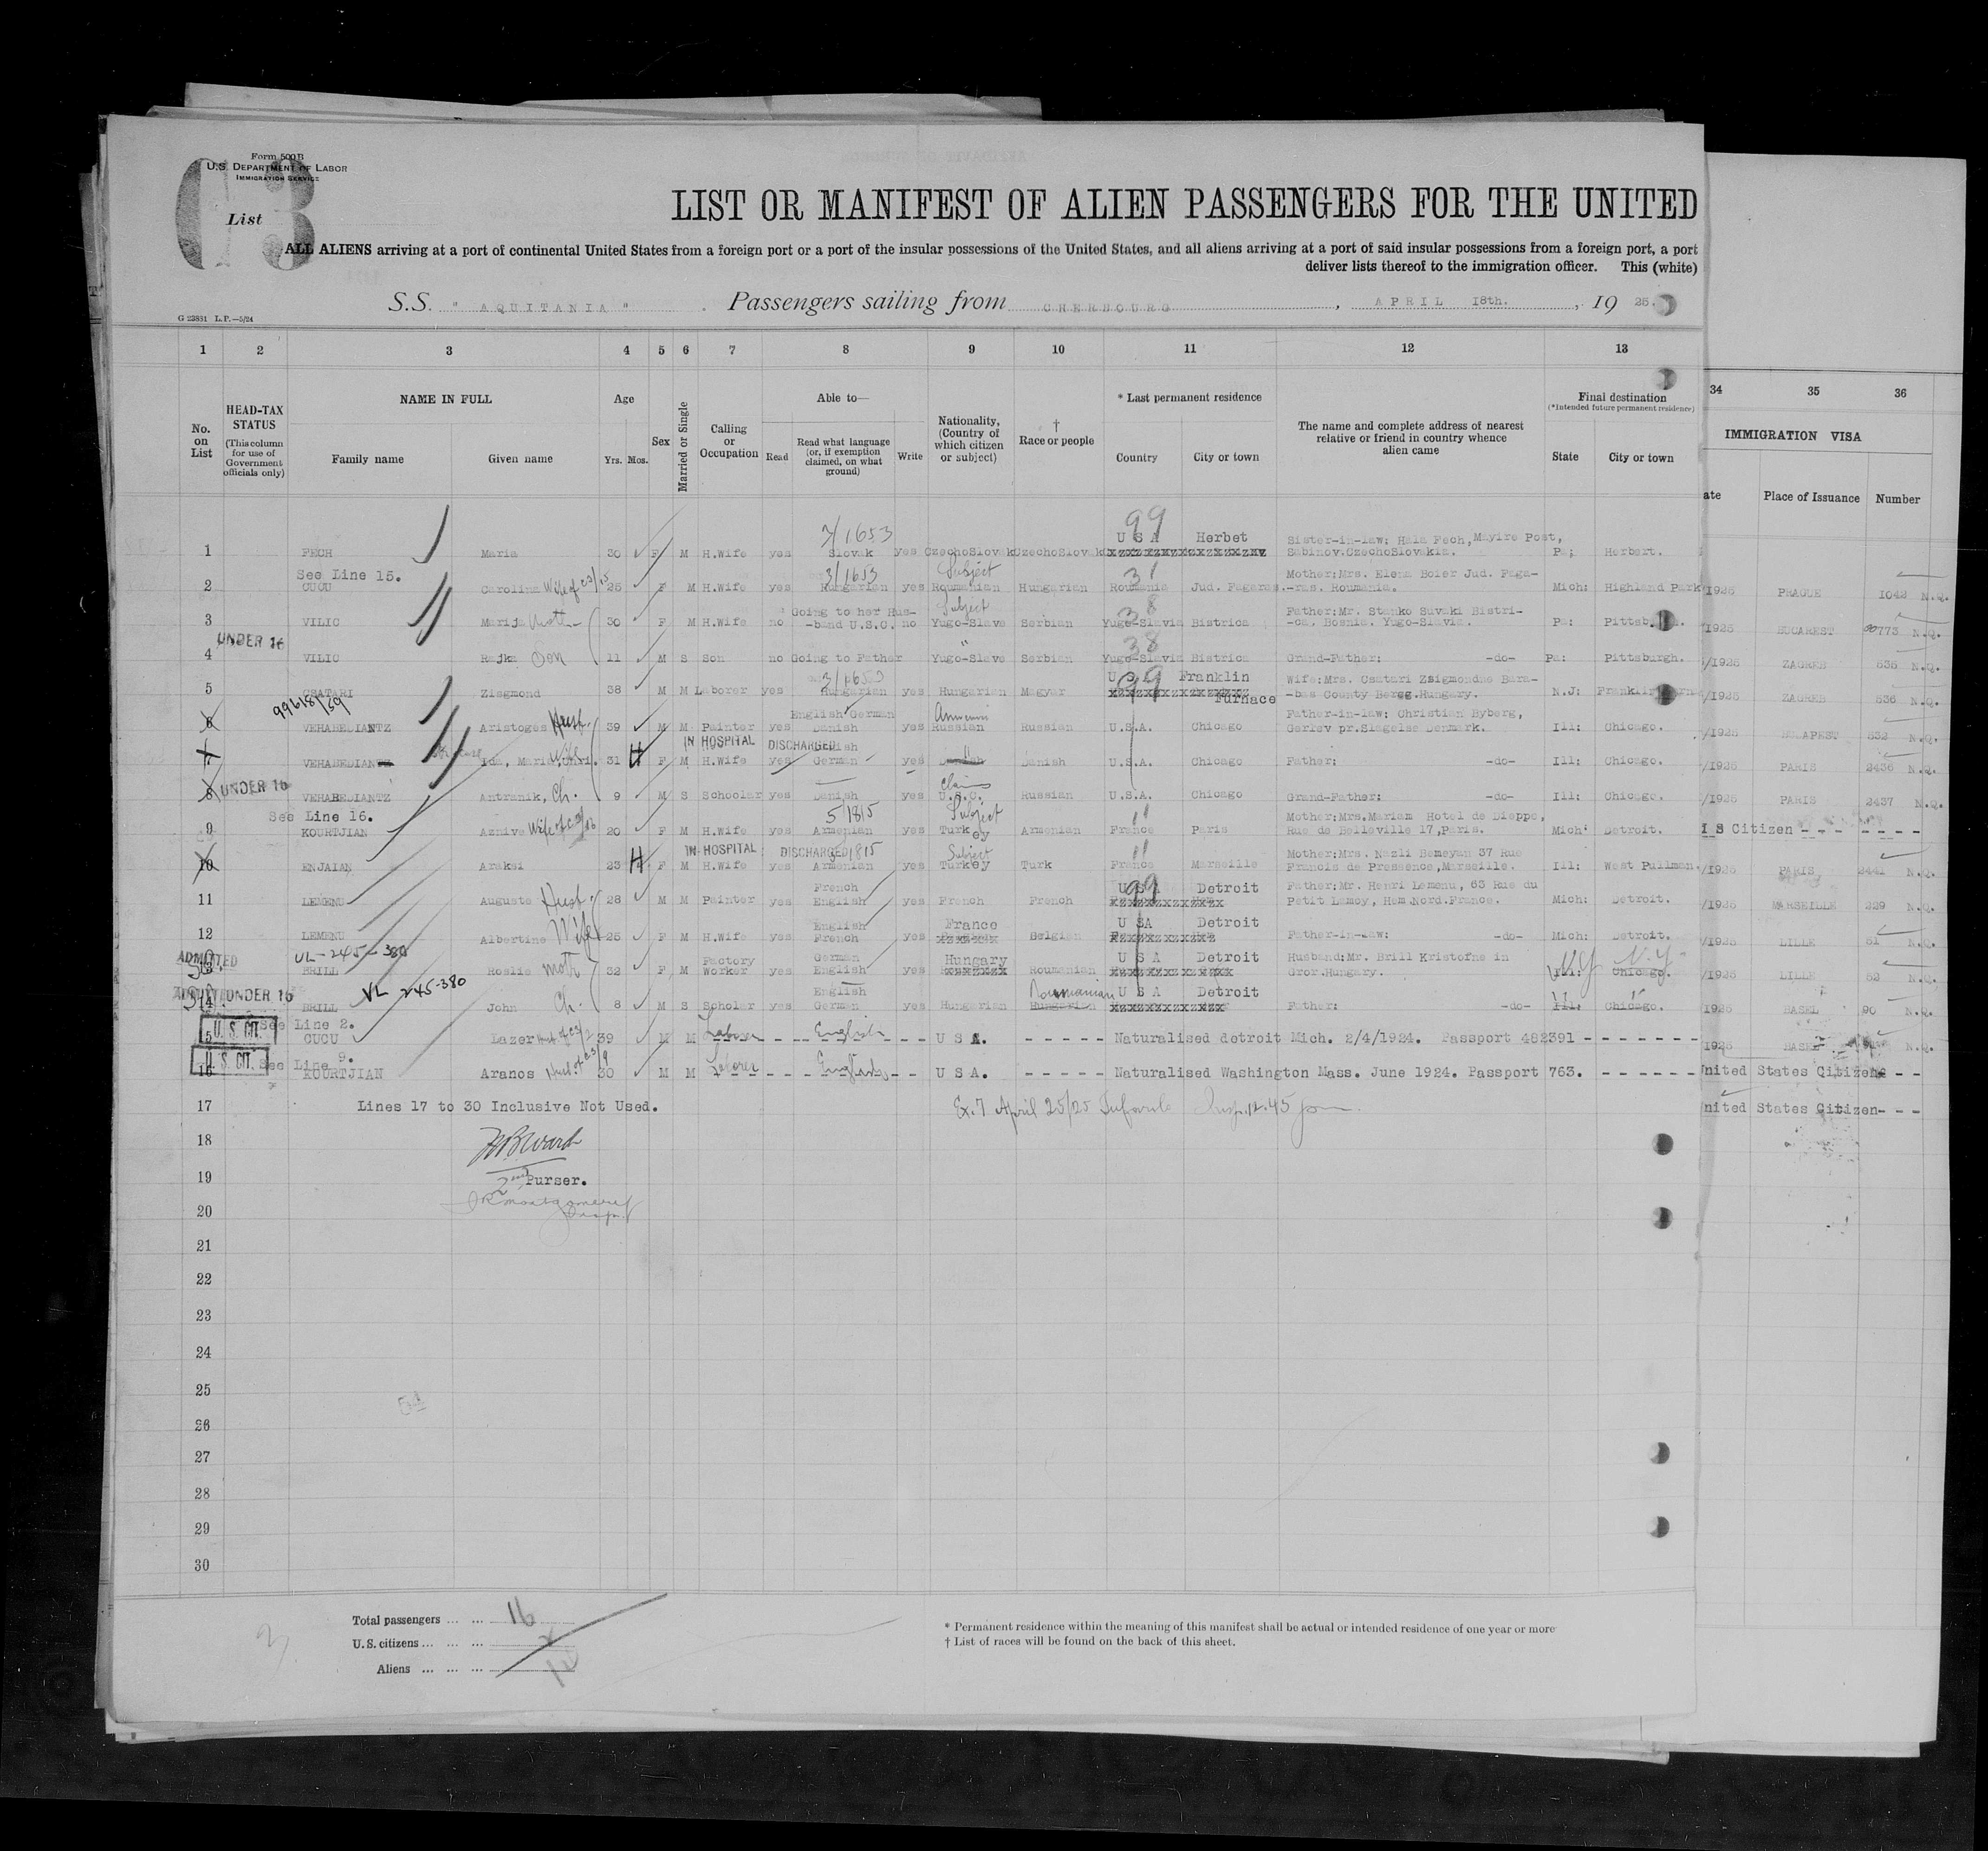 Form 500B
U.S. DEPARTMENT OF LABOR
IMMIGRATION SERVICE
63
List
LIST OR MANIFEST OF ALIEN PASSENGERS FOR THE UNITED
ALL ALIENS arriving at a port of continental United States from a foreign port or a port of the insular possessions of the United States, and all aliens arriving at a port of said insular possessions from a foreign port, a port
deliver lists thereof to the immigration officer. This (white)
S.S. " AQUITANIA ". Passengers sailing from CHERBOURG, APRIL 18th., 1925.
G 23831 L.P.—5/24
1 2 3 4 5 6 7 8 9 10 11 12 13
34 35 36
No. on List
HEAD-TAX STATUS (This column for use of Government officials only)
NAME IN FULL
Family name Given name
Age Yrs. Mos.
Sex
Married or Single
Calling or Occupation
Able to— Read Read what language (or, if exemption claimed, on what ground) Write
Nationality, (Country of which citizen or subject)
† Race or people
* Last permanent residence Country City or town
The name and complete address of nearest relative or friend in country whence alien came
Final destination (*Intended future permanent residence) State City or town
IMMIGRATION VISA
ate Place of Issuance Number
3/1653 99 U S A Herbet Sister-in-law; Hala Pech, Mayire Post,
1 PECH Maria 30 F M H.Wife yes Slovak yes CzechoSlovak CzechoSlovak Sabinov.CzechoSlovakia. Pa; Herbert.
See Line 15. 3/1653 Subject 31 Mother:Mrs. Elena Boier Jud. Faga-
2 CUCU Carolina Wife of 25 F M H.Wife yes Hungarian yes Roumanian Hungarian Roumania Jud. Fagaras. -ras. Roumania. Mich: Highland Park
/1925 PRAGUE 1042 N.Q.
Going to her Hus- Subject 38 Father:Mr. Stanko Suvaki Bistri-
3 VILIC Marija 30 F M H.Wife no -band U.S.C. no Yugo-Slave Serbian Yugo-Slavia Bistrica -ca, Bosnia. Yugo-Slavia. Pa: Pittsb
1925 BUCAREST 773 N.Q.
UNDER 16 " 38
4 VILIC Rajka Son 11 M S Son no Going to Father Yugo-Slave Serbian Yugo-Slavia Bistrica Grand-Father: -do- Pa: Pittsburgh.
/1925 ZAGREB 535 N.Q.
U S A Franklin Wife:Mrs. Csatari Zsigmondne Bara-
5 CSATARI Zisgmond 38 M M Laborer yes Hungarian yes Hungarian Magyar Furnace -bas County Beregg.Hungary. N.J: Franklin
/1925 ZAGREB 536 N.Q.
99618/39 English German Father-in-law: Christian Ryberg,
6 VEHABEDIANTZ Aristoges Husb. 39 M M Painter yes Danish yes Russian Russian U.S.A. Chicago Gerlev pr.Slagelse Denmark. Ill: Chicago.
/1925 BUDAPEST 532 N.Q.
IN HOSPITAL DISCHARGED
VEHABEDIANTZ Ida, Maria, Wife 31 H F M H.Wife yes German yes Danish Danish U.S.A. Chicago Father: -do- Ill: Chicago.
/1925 PARIS 2436 N.Q.
UNDER 16 Claims
8 VEHABEDIANTZ Antranik, Ch. 9 M S Schooler yes Danish yes U.S.C. Russian U.S.A. Chicago Grand-Father: -do- Ill: Chicago.
/1925 PARIS 2437 N.Q.
See Line 16. 5/1815 Subject 11 Mother:Mrs.Mariam Hotel de Dieppe,
9 KOURTJIAN Aznive Wife of 20 F M H.Wife yes Armenian yes Turkey Armenian France Paris Rue de Belleville 17,Paris. Mich: Detroit.
S Citizen - - - - - - -
IN HOSPITAL DISCHARGED 1815 Subject 11 Mother:Mrs. Nazli Bemeyan 37 Rue
10 ENJAIAN Araksi 23 H F M H.Wife yes Armenian yes Turkey Turk France Marseille Francis de Pressence,Marseille. Ill: West Pullman.
/1925 PARIS 2441 N.Q.
French 99 U S A Detroit Father:Mr. Henri Lemenu, 63 Rue du
11 LEMENU Auguste Husb. 28 M M Painter yes English yes French French Petit Lamoy, Hem.Nord.France. Mich: Detroit.
/1925 MARSEILLE 229 N.Q.
English France U SA Detroit
12 LEMENU Albertine Wife 25 F M H.Wife yes French yes Belgian Father-in-law: -do- Mich: Detroit.
/1925 LILLE 51 N.Q.
ADMITTED VL-245-380 Factory German Hungary U S A Detroit Husband:Mr. Brill Kristofne in N.Y.
BRILL Roslie Moth 32 F M Worker yes English yes Roumanian Grox.Hungary. Ill: Chicago.
/1925 LILLE 52 N.Q.
ADMITTED UNDER 16 VL 245-380 English Roumanian U S A Detroit
14 BRILL John Ch. 8 M S Scholar yes German yes Hungarian Hungarian Father: -do- Ill: Chicago.
1925 BASEL 90 N.Q.
U.S. CIT. See Line 2.
CUCU Lazer 39 M M Laborer English U S A. - - - - - Naturalised detroit Mich. 2/4/1924. Passport 482391 - - - - - - -
1925 BASEL N.Q.
U.S. CIT. See Line 9.
16 KOURTJIAN Aranos 30 M M Laborer English U S A. - - - - - Naturalised Washington Mass. June 1924. Passport 763. - - - - - -
United States Citizen - -
17 Lines 17 to 30 Inclusive Not Used. Ex. 7 April 25/25 12.45 pm
nited States Citizen- - -
18
2nd Purser.
19
20
21
22
23
24
25
26
27
28
29
30
Total passengers ... ... 16
U.S. citizens ... ... ...
Aliens ... ... ...
* Permanent residence within the meaning of this manifest shall be actual or intended residence of one year or more
† List of races will be found on the back of this sheet.